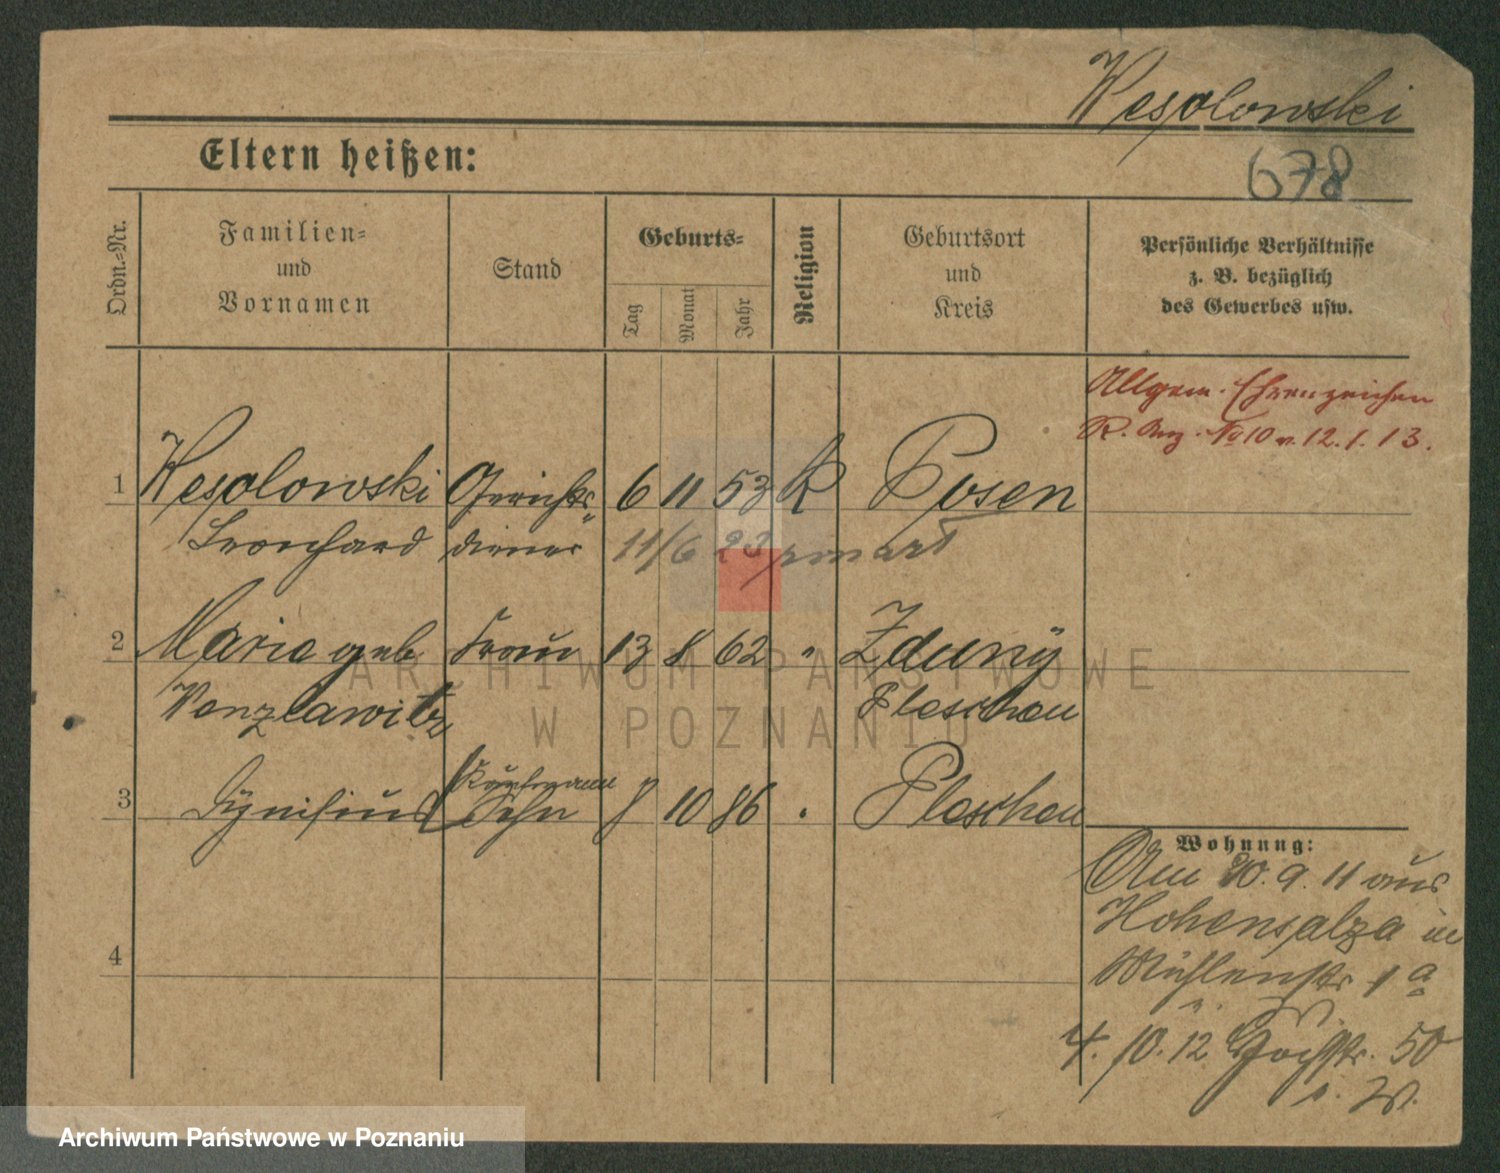 Wesolowski
Eltern heißen:
678
Ordn.-Nr.
Familien-
und
Vornamen
Stand
Geburts-
Tag
Monat
Jahr
Religion
Geburtsort
und
Kreis
Persönliche Verhältnisse
z. B. bezüglich
des Gewerbes usw.
Allgem. Ehrenzeichen
R. Anz. No 10 v. 12.1.13.
1 Wesolowski Gerichts- 6 11 53 K Posen
Leonhard diener 11/6 23
2 Maria geb Frau 13 8 62 " Zduny
Wenzlawitz Pleschen
Kaufmann
3 Sohn 10 86 " Pleschen
Wohnung:
Am 20.9.11 aus
Hohensalza in
Mühlenstr 1a
4
4.10.12 50
ARCHIWUM PAŃSTWOWE
W POZNANIU
Archiwum Państwowe w Poznaniu